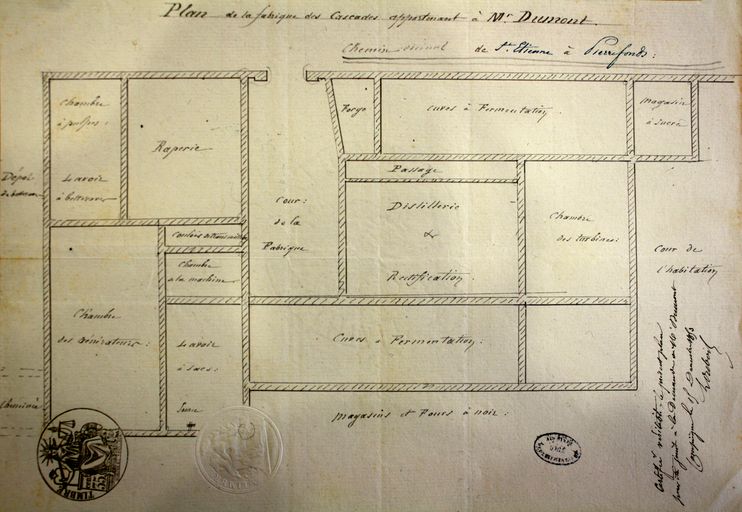 Plan de la fabrique des Cascades appartenant à Mr Dumont.
Chemin vicinal de St Etienne à Pierrefonds :
Chambre
à pulpes :
Lavoir
à betteraves
Raperie
Dépôt
de betteraves
Forge
Cuves à Fermentation
Magasin
à sucre
Passage
Distillerie
&
Rectification :
Chambre
des turbines :
Cour :
de la
Fabrique
Cour de
l'habitation
Chambre
a la machine
Chambre
des Générateurs :
Lavoir
à sacs :
Cuves à Fermentation :
Cheminée
Magasins et Fours à noir :
TIMBRE
Certifié véritable le présent plan
pour être joint à la Demande de Mr Dumont